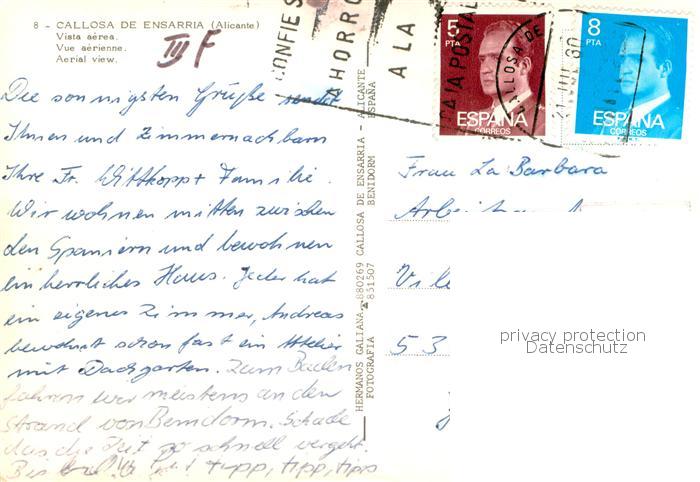 8 - CALLOSA DE ENSARRIA (Alicante)
Vista aérea.
Vue aérienne.
Aerial view.
III F
CONFIES
AHORRO
A LA
CAJA POSTAL
CALLOSA DE
80
5
PTA
ESPAÑA
CORREOS
8
PTA
ESPAÑA
CORREOS
Die sonnigsten Grüße sendet
Ihnen und Zimmernachbarn
Ihre Fr. Wittkopp + Familie.
Wir wohnen mitten zwischen
den Spaniern und bewohnen
ein herrliches Haus. Jeder hat
ein eigenes Zimmer, Andreas
bewohnt schon fast ein Atelier
mit Dachgarten. Zum Baden
fahren wir meistens an den
Strand von Benidorm. Schade
das die Zeit so schnell vergeht.
Bis tipp, tipp, tipp
HERMANOS GALIANA - 880269 CALLOSA DE ENSARRIA - ALICANTE
FOTOGRAFIA 851507 BENIDORM ESPAÑA
Frau La Barbara
53
privacy protection
Datenschutz